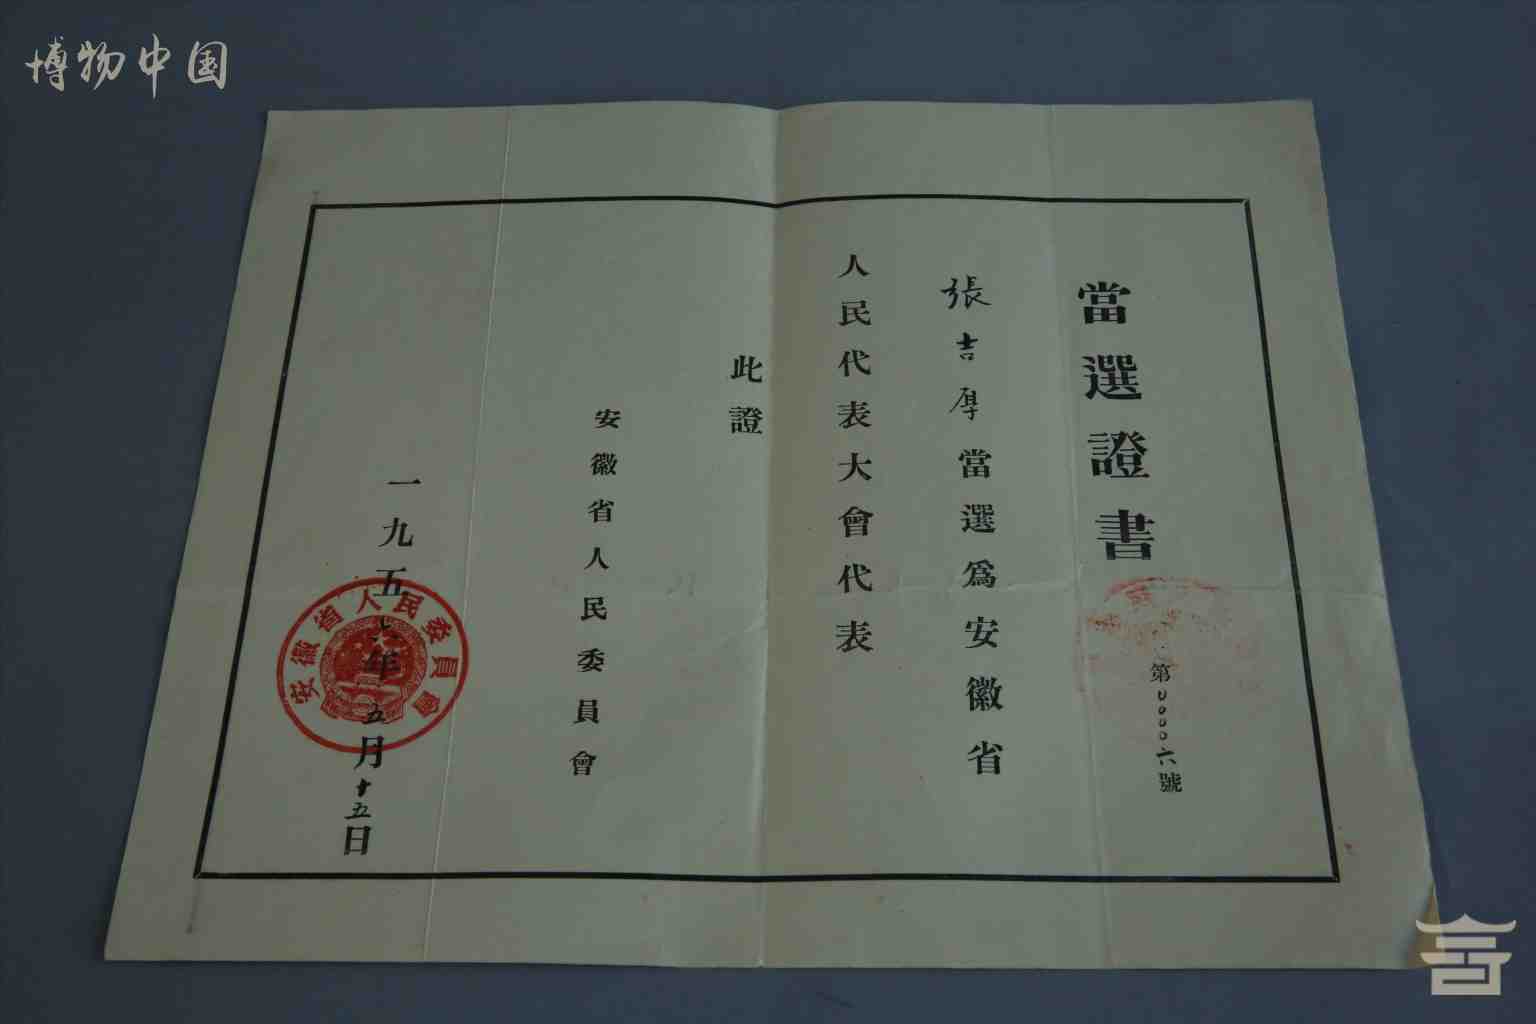 博物中国
當選證書
第00006號
張吉厚當選爲安徽省
人民代表大會代表
此證
安徽省人民委員會
一九五六年五月十五日
安徽省人民委員會